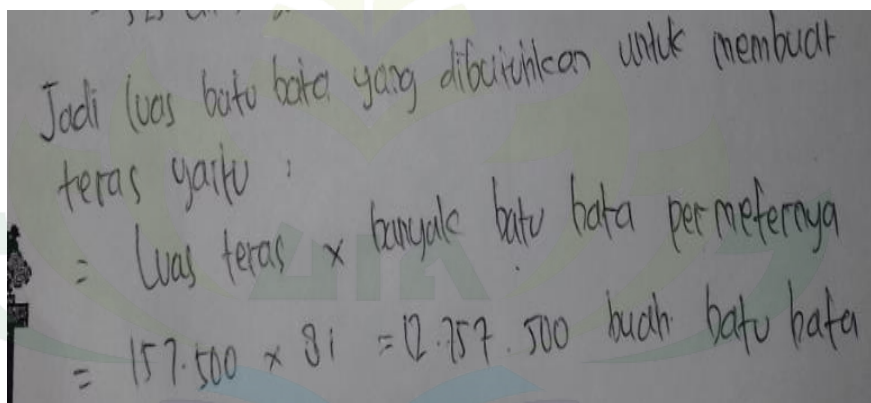 Jadi luas batu bata yang dibutuhkan untuk membuat
teras yaitu :
= Luas teras x banyak batu bata permeternya
= 157.500 x 81 = 12.757.500 buah batu bata